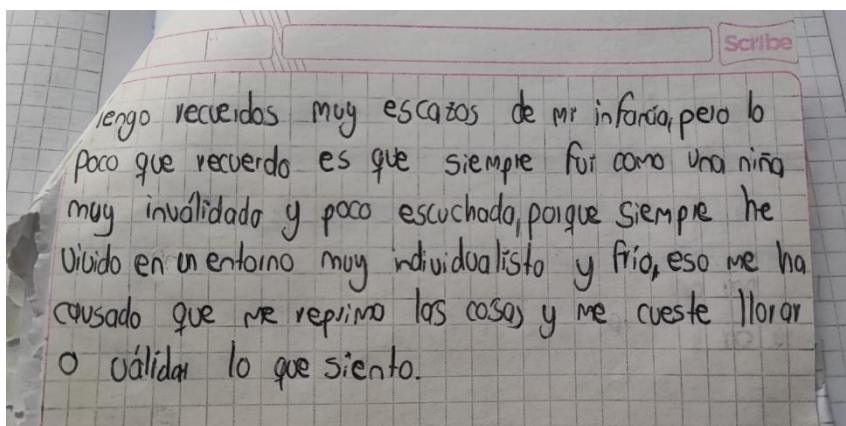 Scribe
Tengo recuerdos muy escazos de mi infancia, pero lo
poco que recuerdo es que siempre fui como una niña
muy inválidada y poco escuchada, porque siempre he
vivido en un entorno muy individualista y frío, eso me ha
causado que me reprima las cosas y me cueste llorar
o válidar lo que siento.